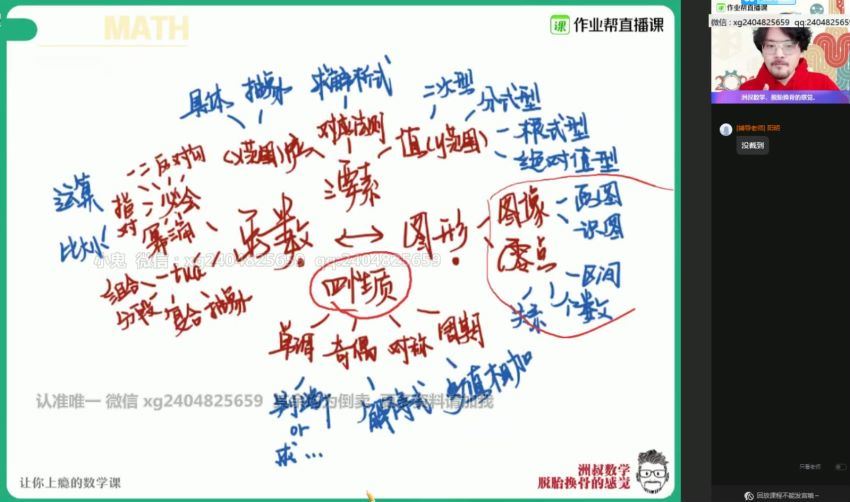 MATH
作业帮直播课
作业帮直播课
微信:xg2404825659 qq:2404825659
洲叔数学，脱胎换骨的感觉。
[辅导老师] 阳明
没截到
具体 抽象 求解析式 二次型 分式型
(x范围)域 对应法则 值(y范围) 根式型
绝对值型
三要素
一二反对勾
必会
指对幂三角
运算
比大小
函数 ↔ 图形
图像 画图
识图
零点 区间
个数
关系
组合
分段 复合 抽象
小鬼 微信:xg2404825659 qq:2404825659
四性质
单调 奇偶 对称 周期
判断
or
求...
解得式
函数值相加
认准唯一 微信 xg2404825659
让你上瘾的数学课
洲叔数学
脱胎换骨的感觉
只看老师
回放课程不能发言哦~